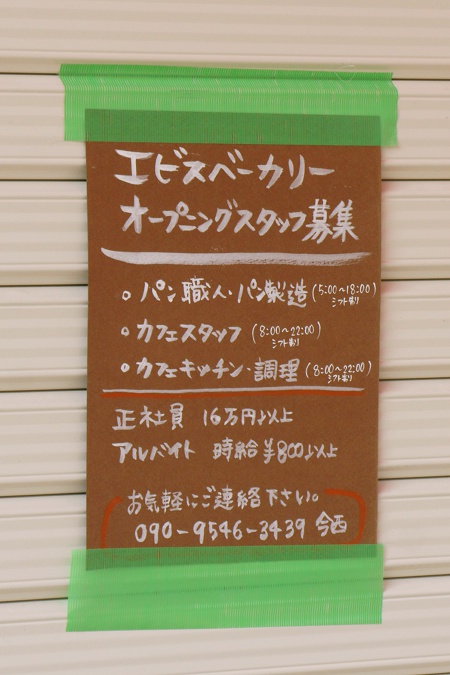 エビスベーカリー
オープニングスタッフ募集
○ パン職人・パン製造 (5:00〜18:00)
シフト制り
○ カフェスタッフ (8:00〜22:00)
シフト制り
○ カフェキッチン・調理 (8:00〜22:00)
シフト制り
正社員 16万円以上
アルバイト 時給¥800以上
お気軽にご連絡下さい。
090-9546-3439 今西